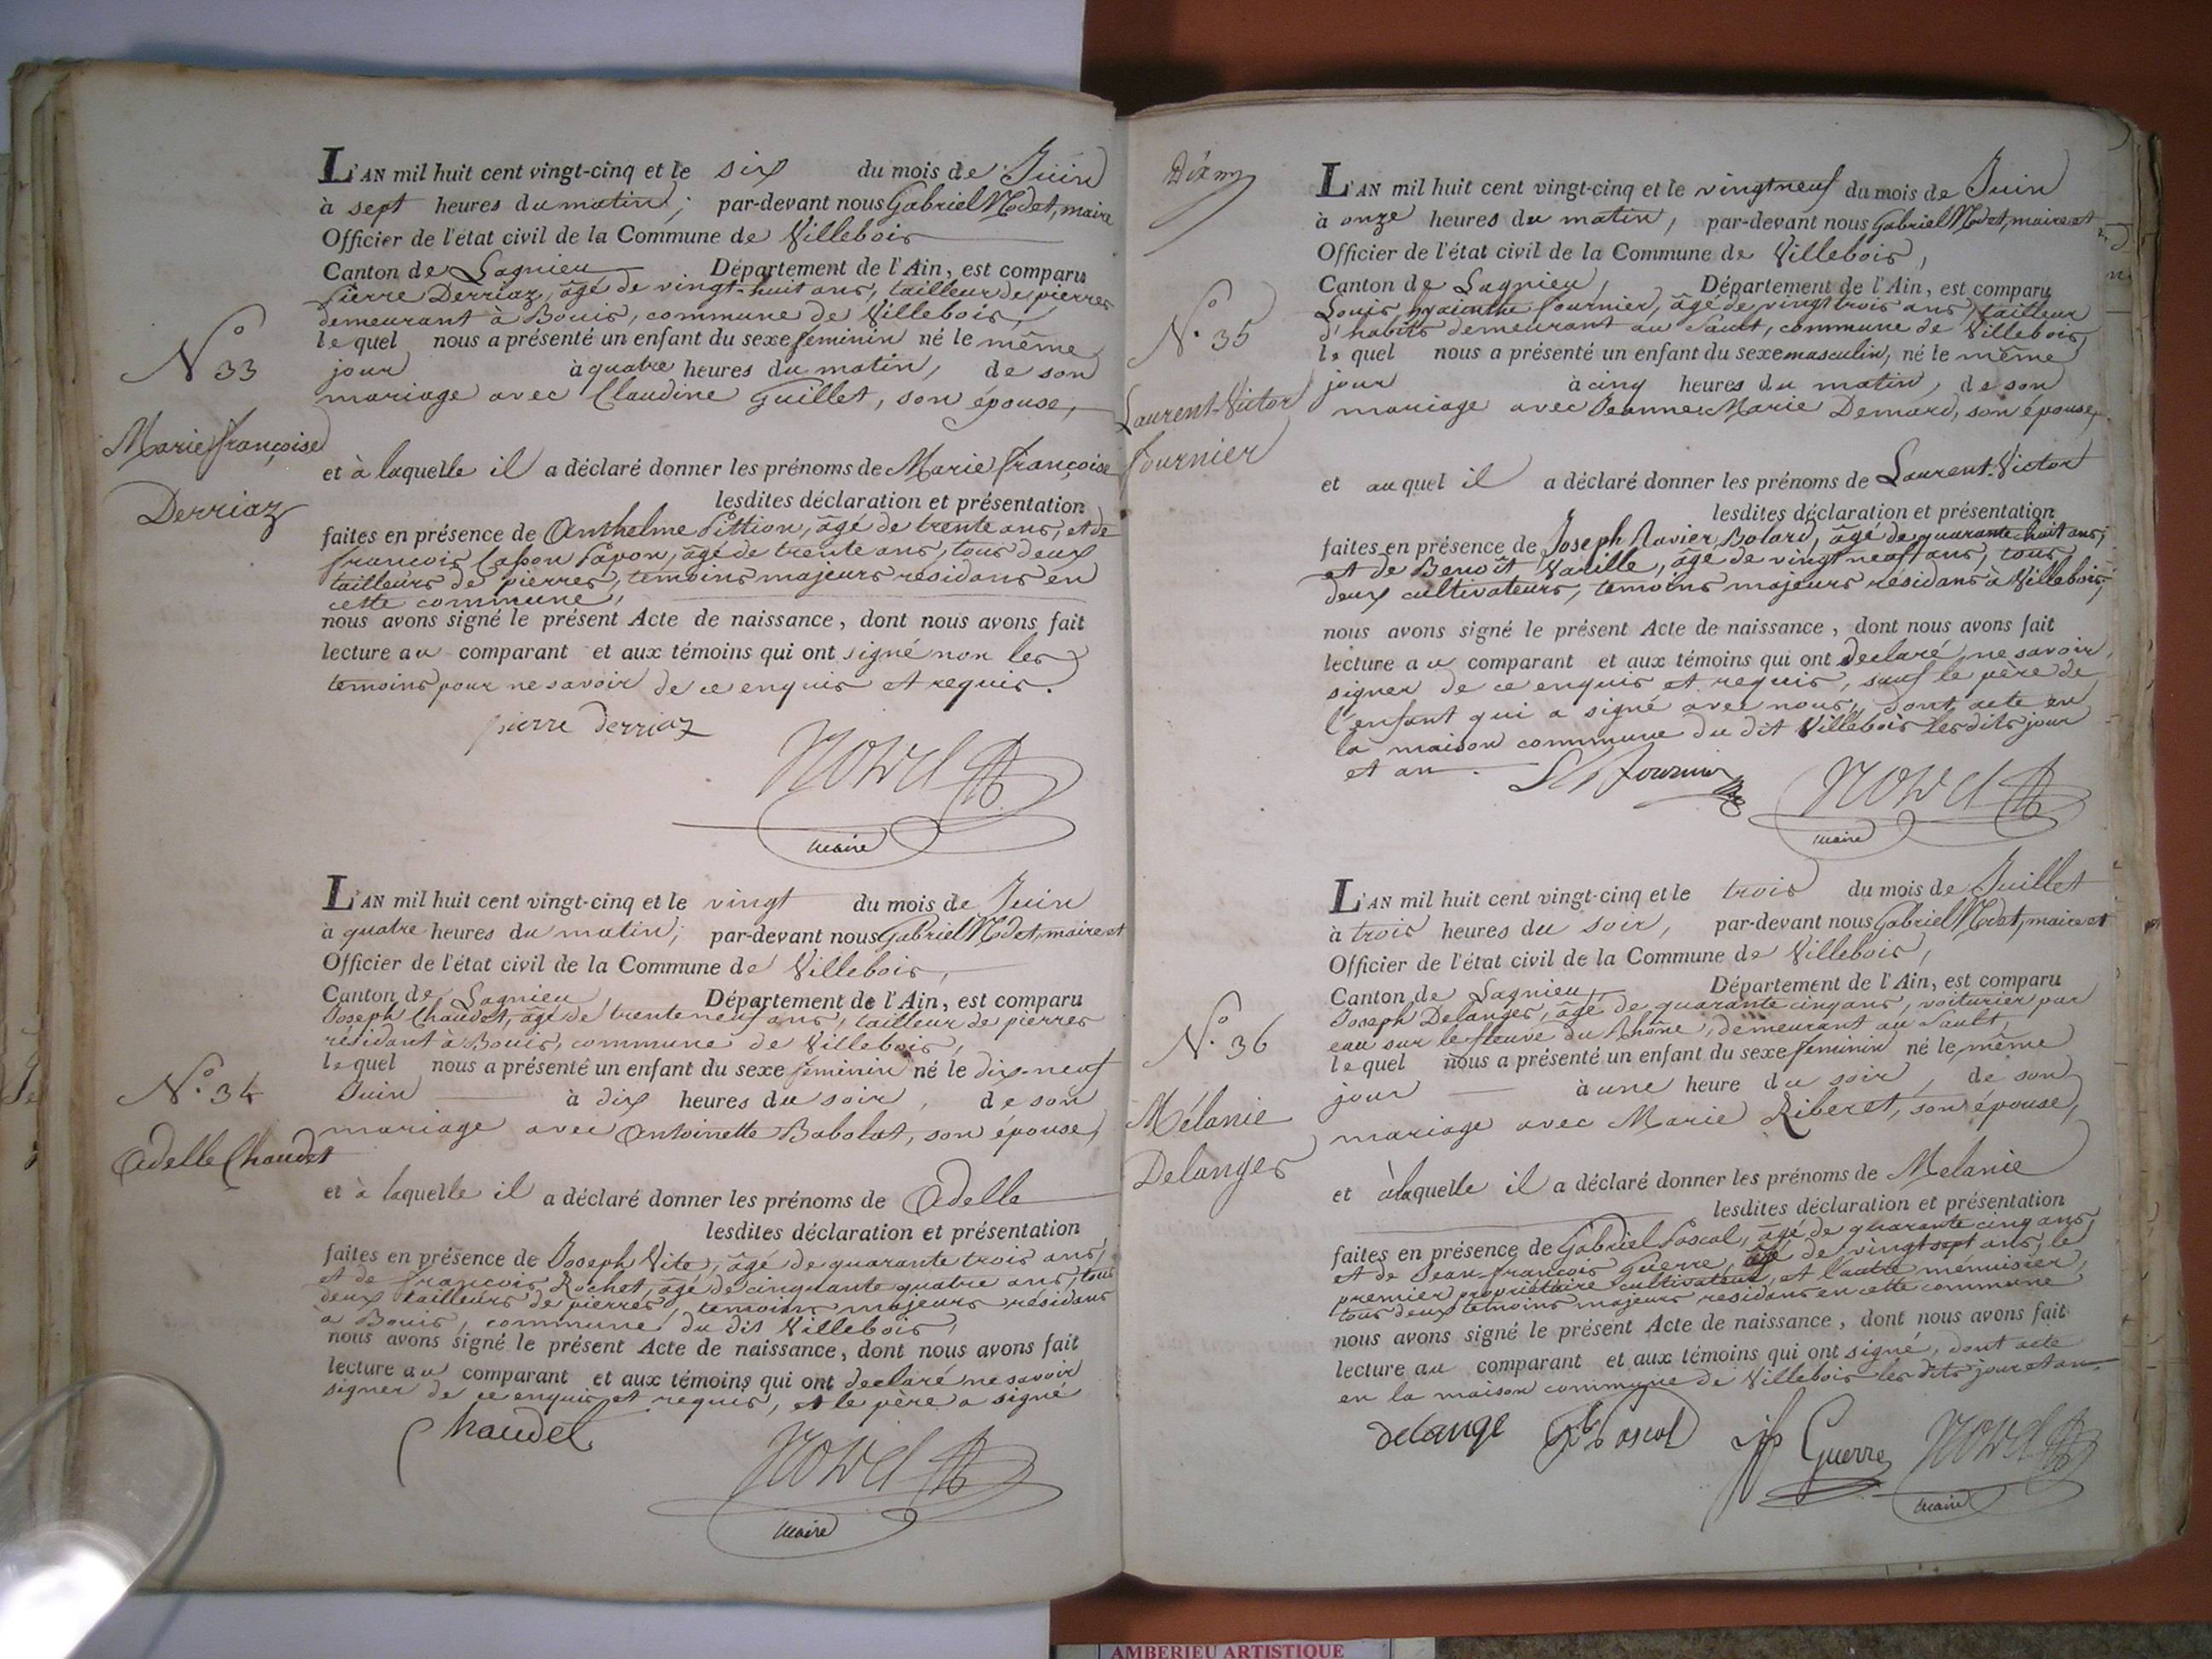 L'AN mil huit cent vingt-cinq et le six du mois de Juin
à sept heures du matin, par-devant nous Gabriel Modet, maire
Officier de l'état civil de la Commune de Villebois
Canton de Lagnieu Département de l'Ain, est comparu
Pierre Derriaz, âgé de vingt-huit ans, tailleur de pierres
demeurant à Bouis, commune de Villebois,
lequel nous a présenté un enfant du sexe feminin né le même
jour à quatre heures du matin, de son
mariage avec Claudine Guillet, son épouse,
et à laquelle il a déclaré donner les prénoms de Marie françoise
lesdites déclaration et présentation
faites en présence de Anthelme Pittion, âgé de trente ans, et de
françois Papon, âgé de trente ans, tous deux
tailleurs de pierres, temoins majeurs residans en
cette commune,
nous avons signé le présent Acte de naissance, dont nous avons fait
lecture au comparant et aux témoins qui ont signé non les
temoins pour ne savoir de ce enquis et requis.
pierre derriaz
maire
No 33
Marie françoise
Derriaz
L'AN mil huit cent vingt-cinq et le vingt du mois de Juin
à quatre heures du matin, par-devant nous Gabriel Modet, maire et
Officier de l'état civil de la Commune de Villebois,
Canton de Lagnieu, Département de l'Ain, est comparu
Joseph Chaudet, âgé de trente neuf ans, tailleur de pierres
résidant à Bouis, commune de Villebois,
lequel nous a présenté un enfant du sexe féminin né le dix-neuf
Juin à dix heures du soir, de son
mariage avec Antoinette Babolat, son épouse,
et à laquelle il a déclaré donner les prénoms de Adelle
lesdites déclaration et présentation
faites en présence de Joseph Vite, âgé de quarante trois ans,
et de françois Rochet, âgé de cinquante quatre ans, tous
deux tailleurs de pierres, temoins majeurs résidans
à Bouis, commune du dit Villebois,
nous avons signé le présent Acte de naissance, dont nous avons fait
lecture au comparant et aux témoins qui ont declaré ne savoir
signer de ce enquis et requis, et le père a signé
Chaudet
maire
No. 34
Adelle Chaudet
L'AN mil huit cent vingt-cinq et le vingt neuf du mois de Juin
à onze heures du matin, par-devant nous Gabriel Modet, maire et
Officier de l'état civil de la Commune de Villebois,
Canton de Lagnieu, Département de l'Ain, est comparu
Louis hyacinthe fournier, âgé de vingt trois ans, tailleur
d'habits demeurant au Sault, commune de Villebois,
lequel nous a présenté un enfant du sexe masculin, né le même
jour à cinq heures du matin, de son
mariage avec Jeanne Marie Demard, son épouse,
et au quel il a déclaré donner les prénoms de Laurent-Victor
lesdites déclaration et présentation
faites en présence de Joseph Xavier Bolard, âgé de quarante huit ans,
et de Benoît Varille, âgé de vingt neuf ans, tous
deux cultivateurs, temoins majeurs résidans à Villebois,
nous avons signé le présent Acte de naissance, dont nous avons fait
lecture au comparant et aux témoins qui ont declaré ne savoir
signer de ce enquis et requis, sauf le père de
l'enfant qui a signé avec nous, dont acte en
la maison commune du dit Villebois les dits jour
et an.
fournier
maire
No. 35
Laurent-Victor
fournier
L'AN mil huit cent vingt-cinq et le trois du mois de Juillet
à trois heures du soir, par-devant nous Gabriel Modet, maire et
Officier de l'état civil de la Commune de Villebois,
Canton de Lagnieu, Département de l'Ain, est comparu
Joseph Delanges, âgé de quarante cinq ans, voiturier par
eau sur le fleuve du Rhône, demeurant au Sault,
lequel nous a présenté un enfant du sexe feminin né le même
jour à une heure du soir, de son
mariage avec Marie Riberet, son épouse,
et à laquelle il a déclaré donner les prénoms de Melanie
lesdites déclaration et présentation
faites en présence de Gabriel Pascal, âgé de quarante cinq ans,
et de Jean-françois Guerre, âgé de vingt sept ans, le
premier propriétaire cultivateur, et l'autre menuisier,
tous deux temoins majeurs residans en cette commune
nous avons signé le présent Acte de naissance, dont nous avons fait
lecture au comparant et aux témoins qui ont signé, dont acte
en la maison commune de Villebois les dits jour et an.
delange Pascal Guerre
maire
No. 36
Mélanie
Delanges
AMBERIEU ARTISTIQUE